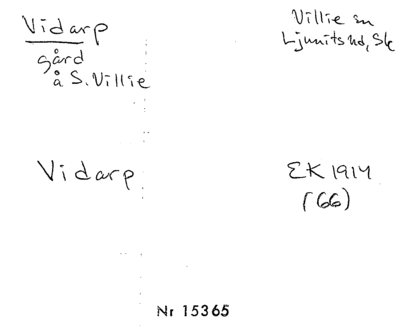 Vidarp
gård
å S. Villie
Villie sn
Ljunits hd, Sk
Vidarp
EK 1914
(66)
Nr 15365